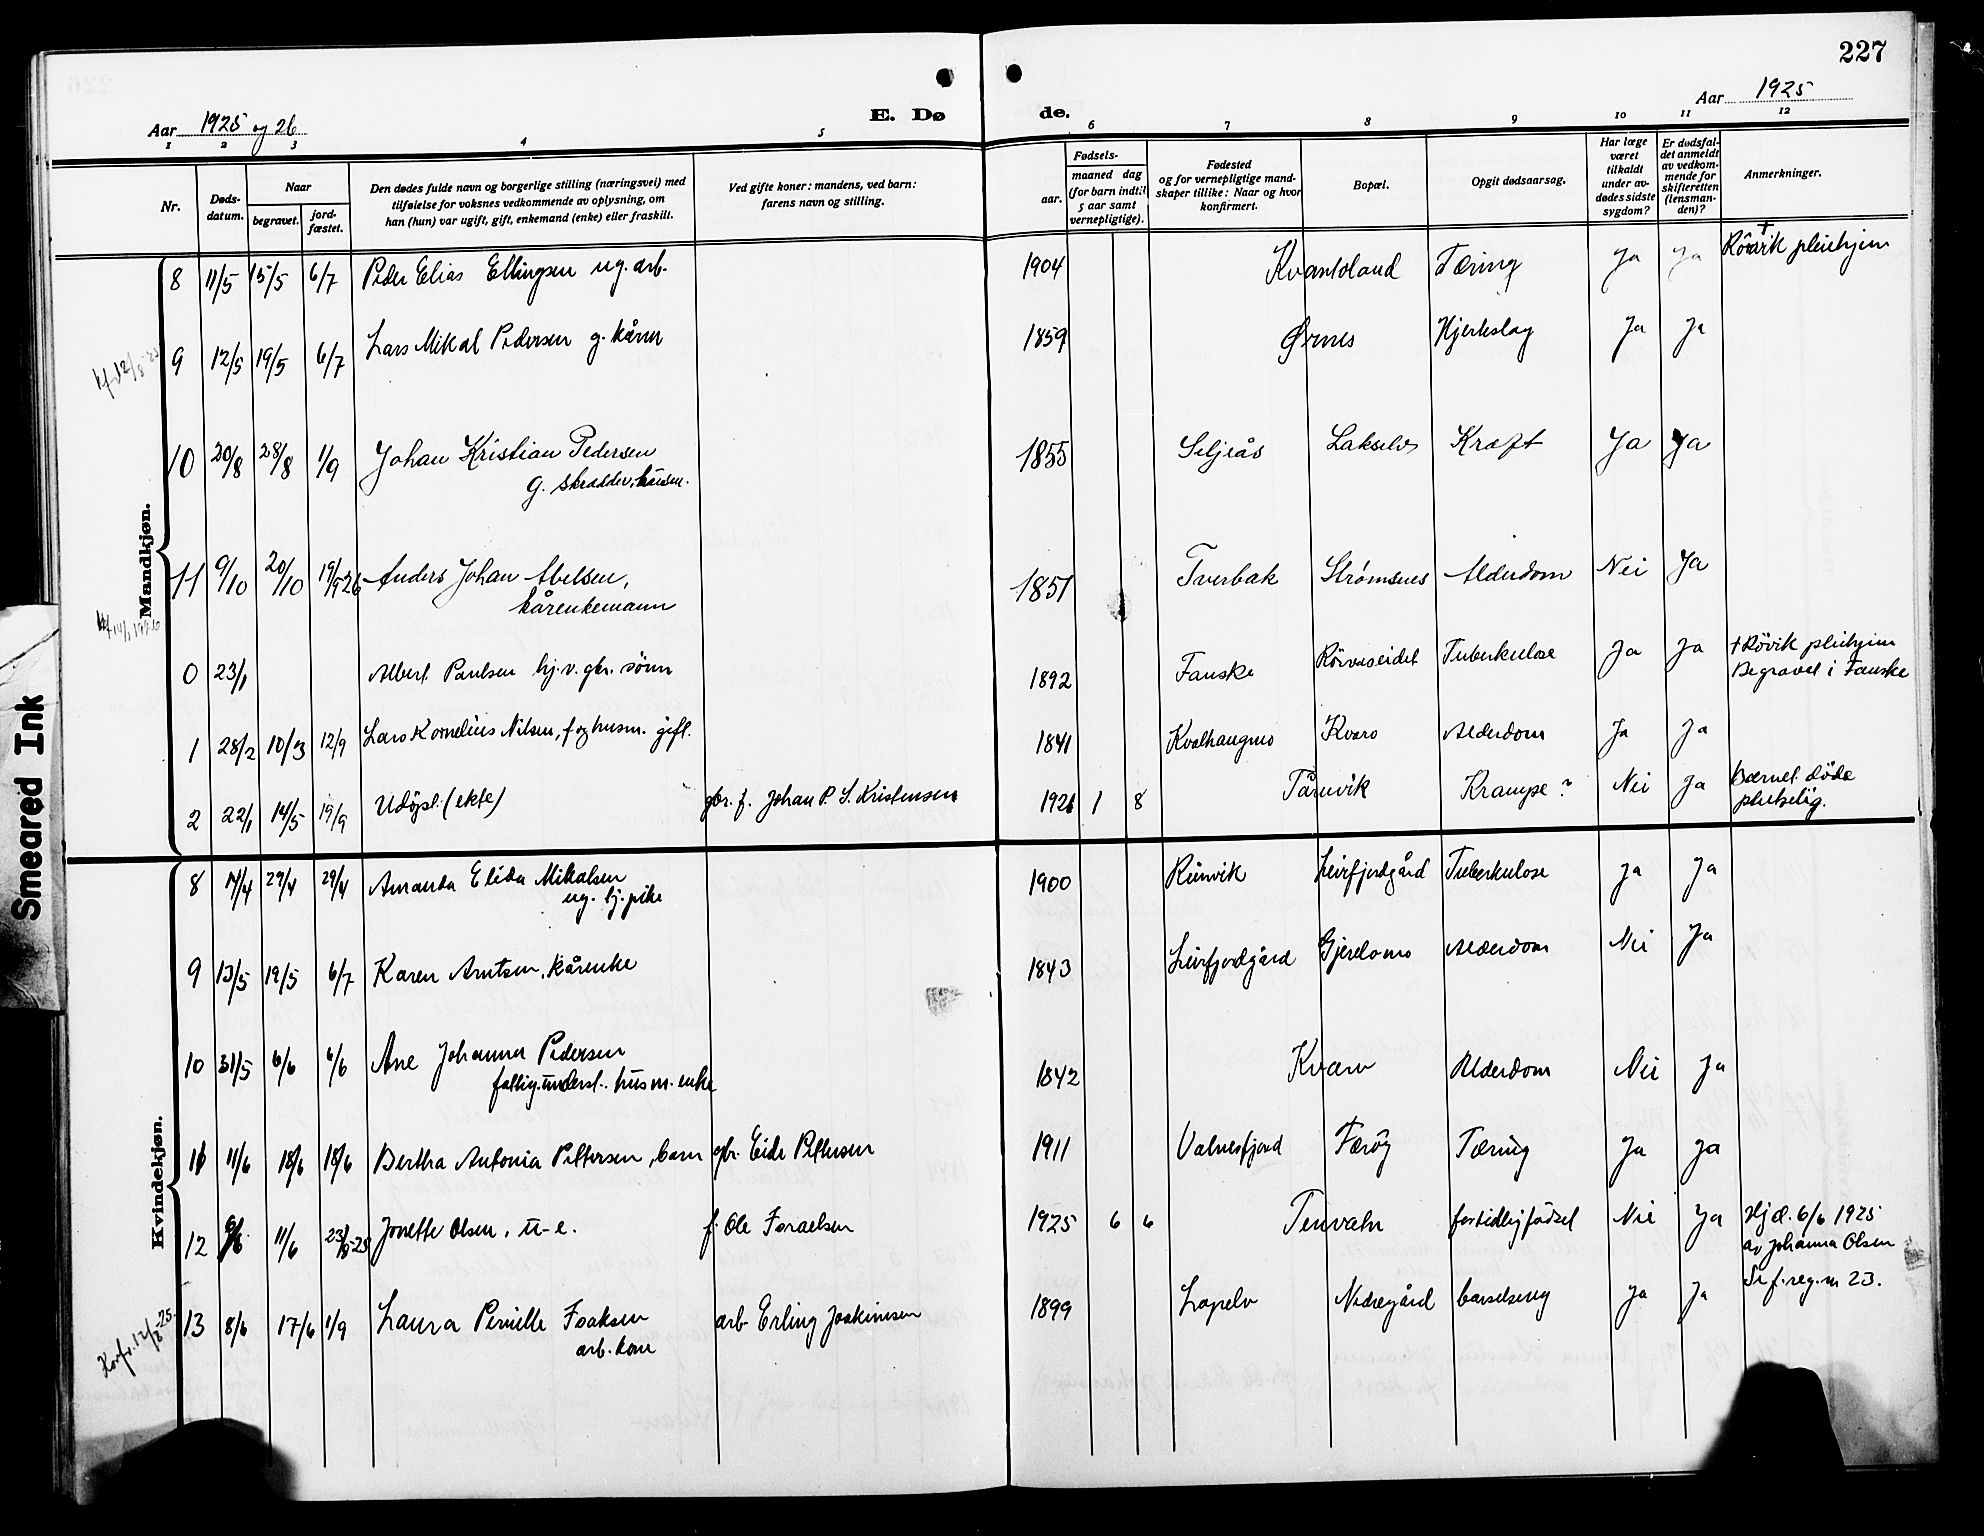 227
Aar 1925 og 26
E. Dø
de.
Aar 1925
1 2 3 4 5 6 7 8 9 10 11 12
Nr.
Døds-
datum.
Naar
begravet.
jord-
fæstet.
Den dødes fulde navn og borgerlige stilling (næringsvei) med
tilføielse for voksnes vedkommende av oplysning, om
han (hun) var ugift, gift, enkemand (enke) eller fraskilt.
Ved gifte koner: mandens, ved barn:
farens navn og stilling.
Fødsels-
aar.
maaned dag
(for barn indtil
5 aar samt
vernepligtige).
Fødested
og for vernepligtige mand-
skaper tillike: Naar og hvor
konfirmert.
Bopæl.
Opgit dødsaarsag.
Har læge
været
tilkaldt
under av-
dødes sidste
sygdom?
Er dødsfal-
det anmeldt
av vedkom-
mende for
skifteretten
(lensman-
den)?
Anmerkninger.
Mandkjøn.
8 11/5 15/5 6/7 Peder Elias Ellingsen ug. arb. 1904 Kvantoland Tæring Ja Ja Rövik pleiehjem
9 12/5 19/5 6/7 Lars Mikal Pedersen g. kårm 1859 Ørnes Hjerteslag Ja Ja
10 20/8 28/8 1/9 Johan Kristian Pedersen 1855 Seljeås Lakselv Kræft Ja Ja
g. skrædder, husm.
11 9/10 20/10 19/9 26 Anders Johan Abelsen, 1851 Tverbak Strømsnes Alderdom Nei Ja
kårenkemann
0 23/1 Albert Paulsen hj. v. gbr. sönn 1892 Fauske Rörvikeidet Tuberkulose Ja Ja + Rövik pleiehjem
Begravet i Fauske
1 28/2 10/3 12/9 Lars Kornelius Nilsen, f og husm. gift. 1841 Kvalhaugmo Kvarv Alderdom Ja Ja
2 22/1 14/5 19/9 Udöpt (ekte) gbr. f. Johan P. S. Kristensen 1926 1 8 Tårnvik Krampe? Nei Ja Barnet döde
plutselig.
Kvindekjøn.
8 14/4 29/4 29/4 Amanda Elida Mikalsen 1900 Rünvik Leirfjordgård Tuberkulose Ja Ja
ug. hj. pike
9 13/5 19/5 6/7 Karen Arntsen, kårenke 1843 Leirfjordgård Alderdom Nei Ja
10 31/5 6/6 6/6 Ane Johanna Pedersen 1842 Kvarv Alderdom Nei Ja
fattig. underst. husm. enke
11 11/6 18/6 18/6 Bertha Antonia Pettersen, barn gbr. Eide Pettersen 1911 Valnesfjord Færöy Tæring Ja Ja
12 6/6 11/6 23/8-25 Jonette Olsen, u-e. f. Ole Israelsen 1925 6 6 Tenvatn fortidlig födsel Nei Ja Hj.d. 6/6 1925
av Johanna Olsen
Se f. reg. nr 23.
13 8/6 17/6 1/9 Laura Pernille Isaksen arb. Erling Joakimsen 1899 Lapelv Nedregård barselseng Ja Ja
arb. kone
Smeared Ink